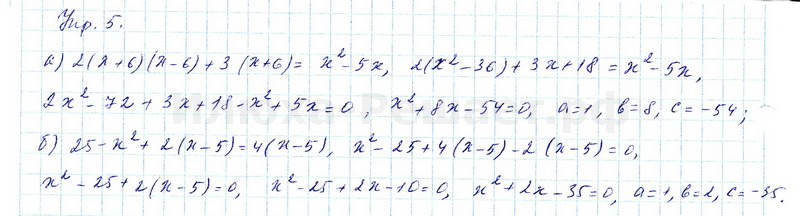 Упр. 5.
а) 2(x+6)(x-6)+3(x+6)= x²-5x, 2(x²-36)+3x+18=x²-5x,
2x²-72+3x+18-x²+5x=0, x²+8x-54=0, a=1, b=8, c=-54;
б) 25-x²+2(x-5)=4(x-5), x²-25+4(x-5)-2(x-5)=0,
x²-25+2(x-5)=0, x²-25+2x-10=0, x²+2x-35=0, a=1, b=2, c=-35.